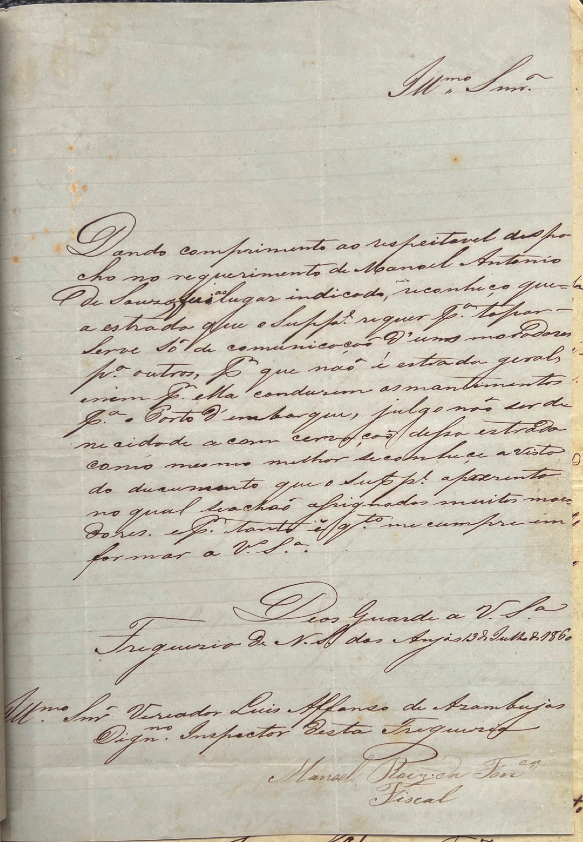 Illmo. Snr.
Dando comprimento ao respeitavel despa-
cho no requerimento de Manoel Antonio
de Souza fui ao lugar indicado, reconheço que
a estrada que o Suppe. requer pa. tapar-
serve só de comunicacão d'uns moradores
pa. outros, pr. que não é estrada geral,
nem pr. ella condusem os mantimentos
pa. o Porto d'embarque, julgo não ser de
necidade a com cervação dessa estrada
como mesmo melhor se conhece a vista
do documento que o Suppe. aprezenta
no qual se achão assignados muitos mora-
dores. e pr. tanto é qto. me cumpre in
formar a V. Sa.
Deos Guarde a V. Sa.
Freguezia de N. Sa. dos Anjos 13 de Julho de 1860
Illmo. Snr. Vereador Luis Affonso de Azambuja
Digno. Inspector desta Freguezia
Manoel da Fonca.
Fiscal